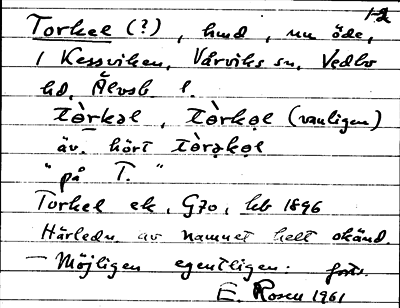 1-2
Torkel (?), hmd, nu öde,
i Kessviken, Vårviks sn, Vedbo
hd, Älvsb l.
tòrkəl, tòrkəl (vanligen)
äv. hört tòrəkəl
"på T."
Torkel ek, G70, hb 1896
Härledn. av namnet helt okänd.
— Möjligen egentligen: forts.
E. Rosen 1961